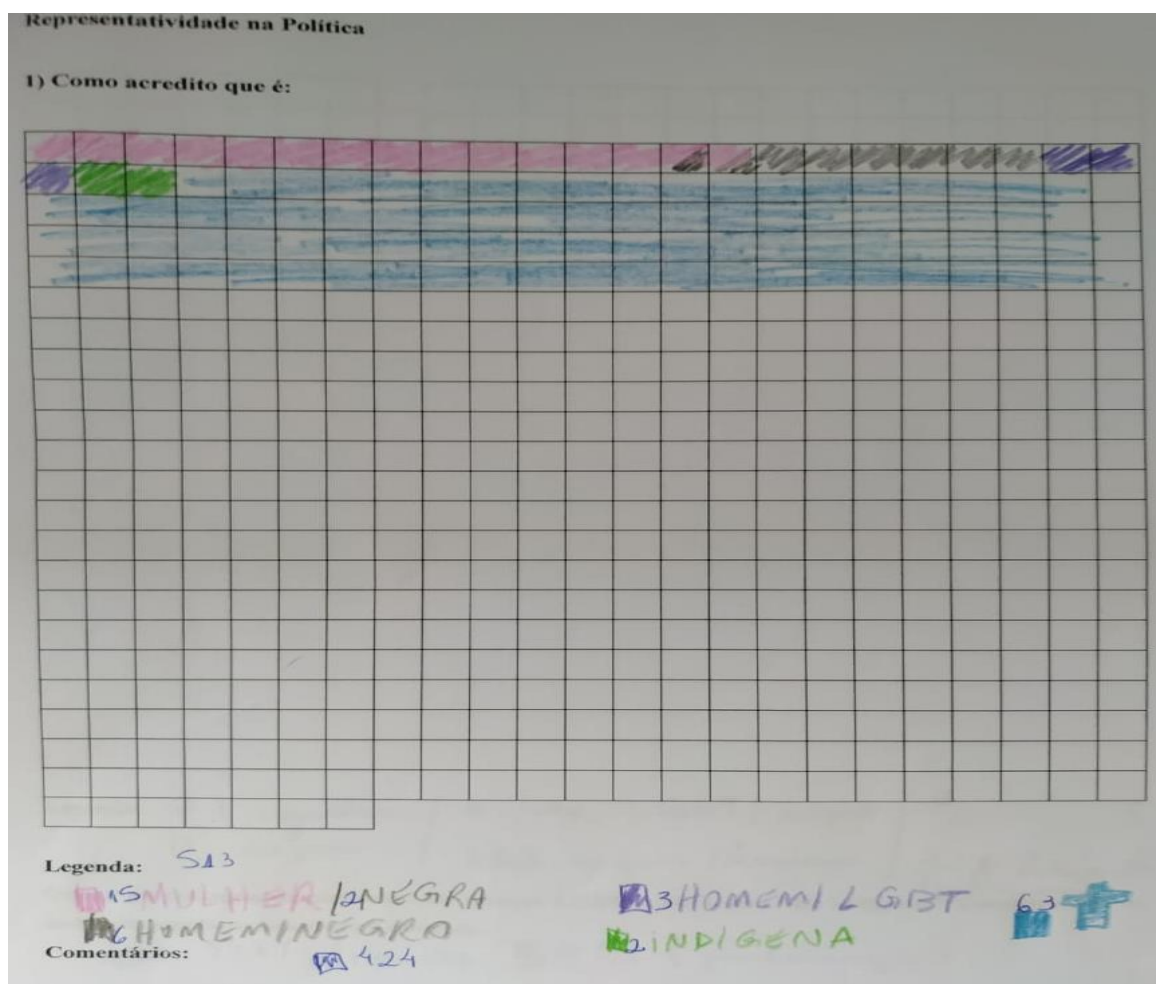 Representatividade na Política
1) Como acredito que é:
Legenda: 513
15 MULHER /2 NEGRA
3 HOMEM/ LGBT
63
6 HOMEM/NEGRO
2 INDÍGENA
Comentários:
424